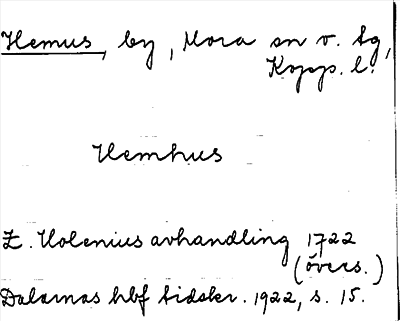 Hemus, by, Mora sn o. tg,
Kopp. l.
Hemhus
E. Holenius avhandling 1722
(övers.)
Dalarnas hbf tidskr. 1922, s. 15.